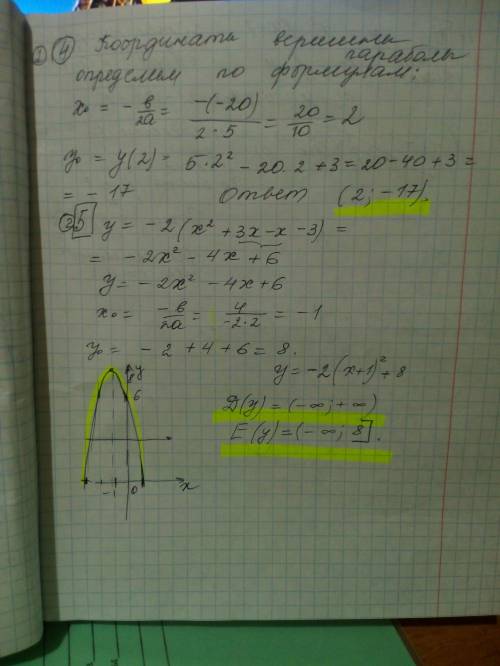 ② ④ Координаты вершины
параболы
определим по формулам:
x₀ = -в/2а = -(-20)/2·5 = 20/10 = 2
y₀ = y(2) = 5·2² - 20·2 + 3 = 20 - 40 + 3 =
= -17 ответ (2; -17).
② 5 y = -2(x² + 3x - x - 3) =
= -2x² - 4x + 6
y = -2x² - 4x + 6
x₀ = -в/2а = 4/-2·2 = -1
y₀ = -2 + 4 + 6 = 8.
y = -2(x+1)² + 8
D(y) = (-∞; +∞)
E(y) = (-∞; 8].
y
8
6
-1 0 x